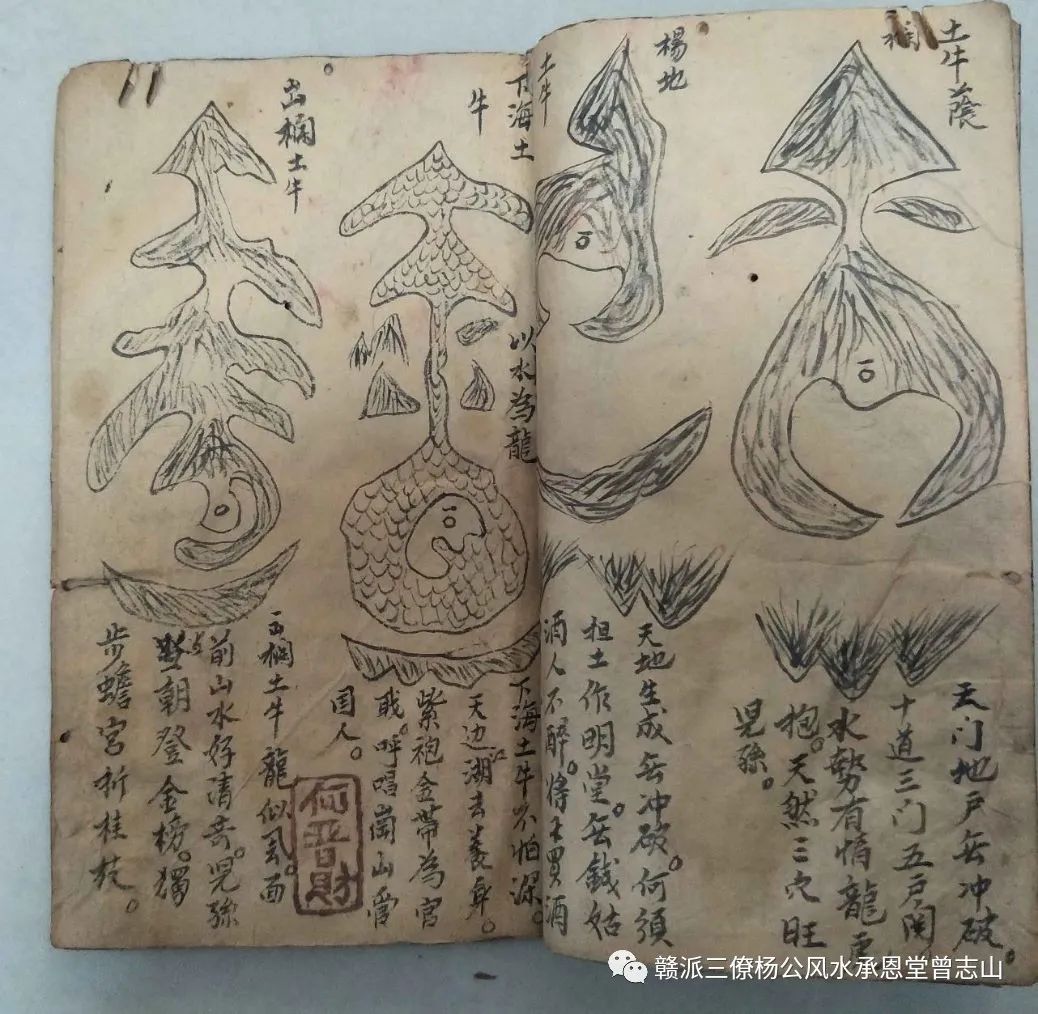 土牛蔭
欄
天门地戶无冲破。
十道三门五户関
水勢有情龍
抱。天然三穴旺
児孫。
楊地
土牛
天地生成无冲破。何須
担土作明堂。无錢姑
酒人不醉。将土買酒
下海土
牛
以水為龍
下海土牛不怕深。
天边江湖去養身。
紫袍金帶為官
职。呼唱崗山爵
国人。
何晋財
出欄土牛
出欄土牛龍似真。面
前山水好清奇。児孫
与朝登金榜。獨
步蟾宮折桂枝。
赣派三僚杨公风水承恩堂曾志山